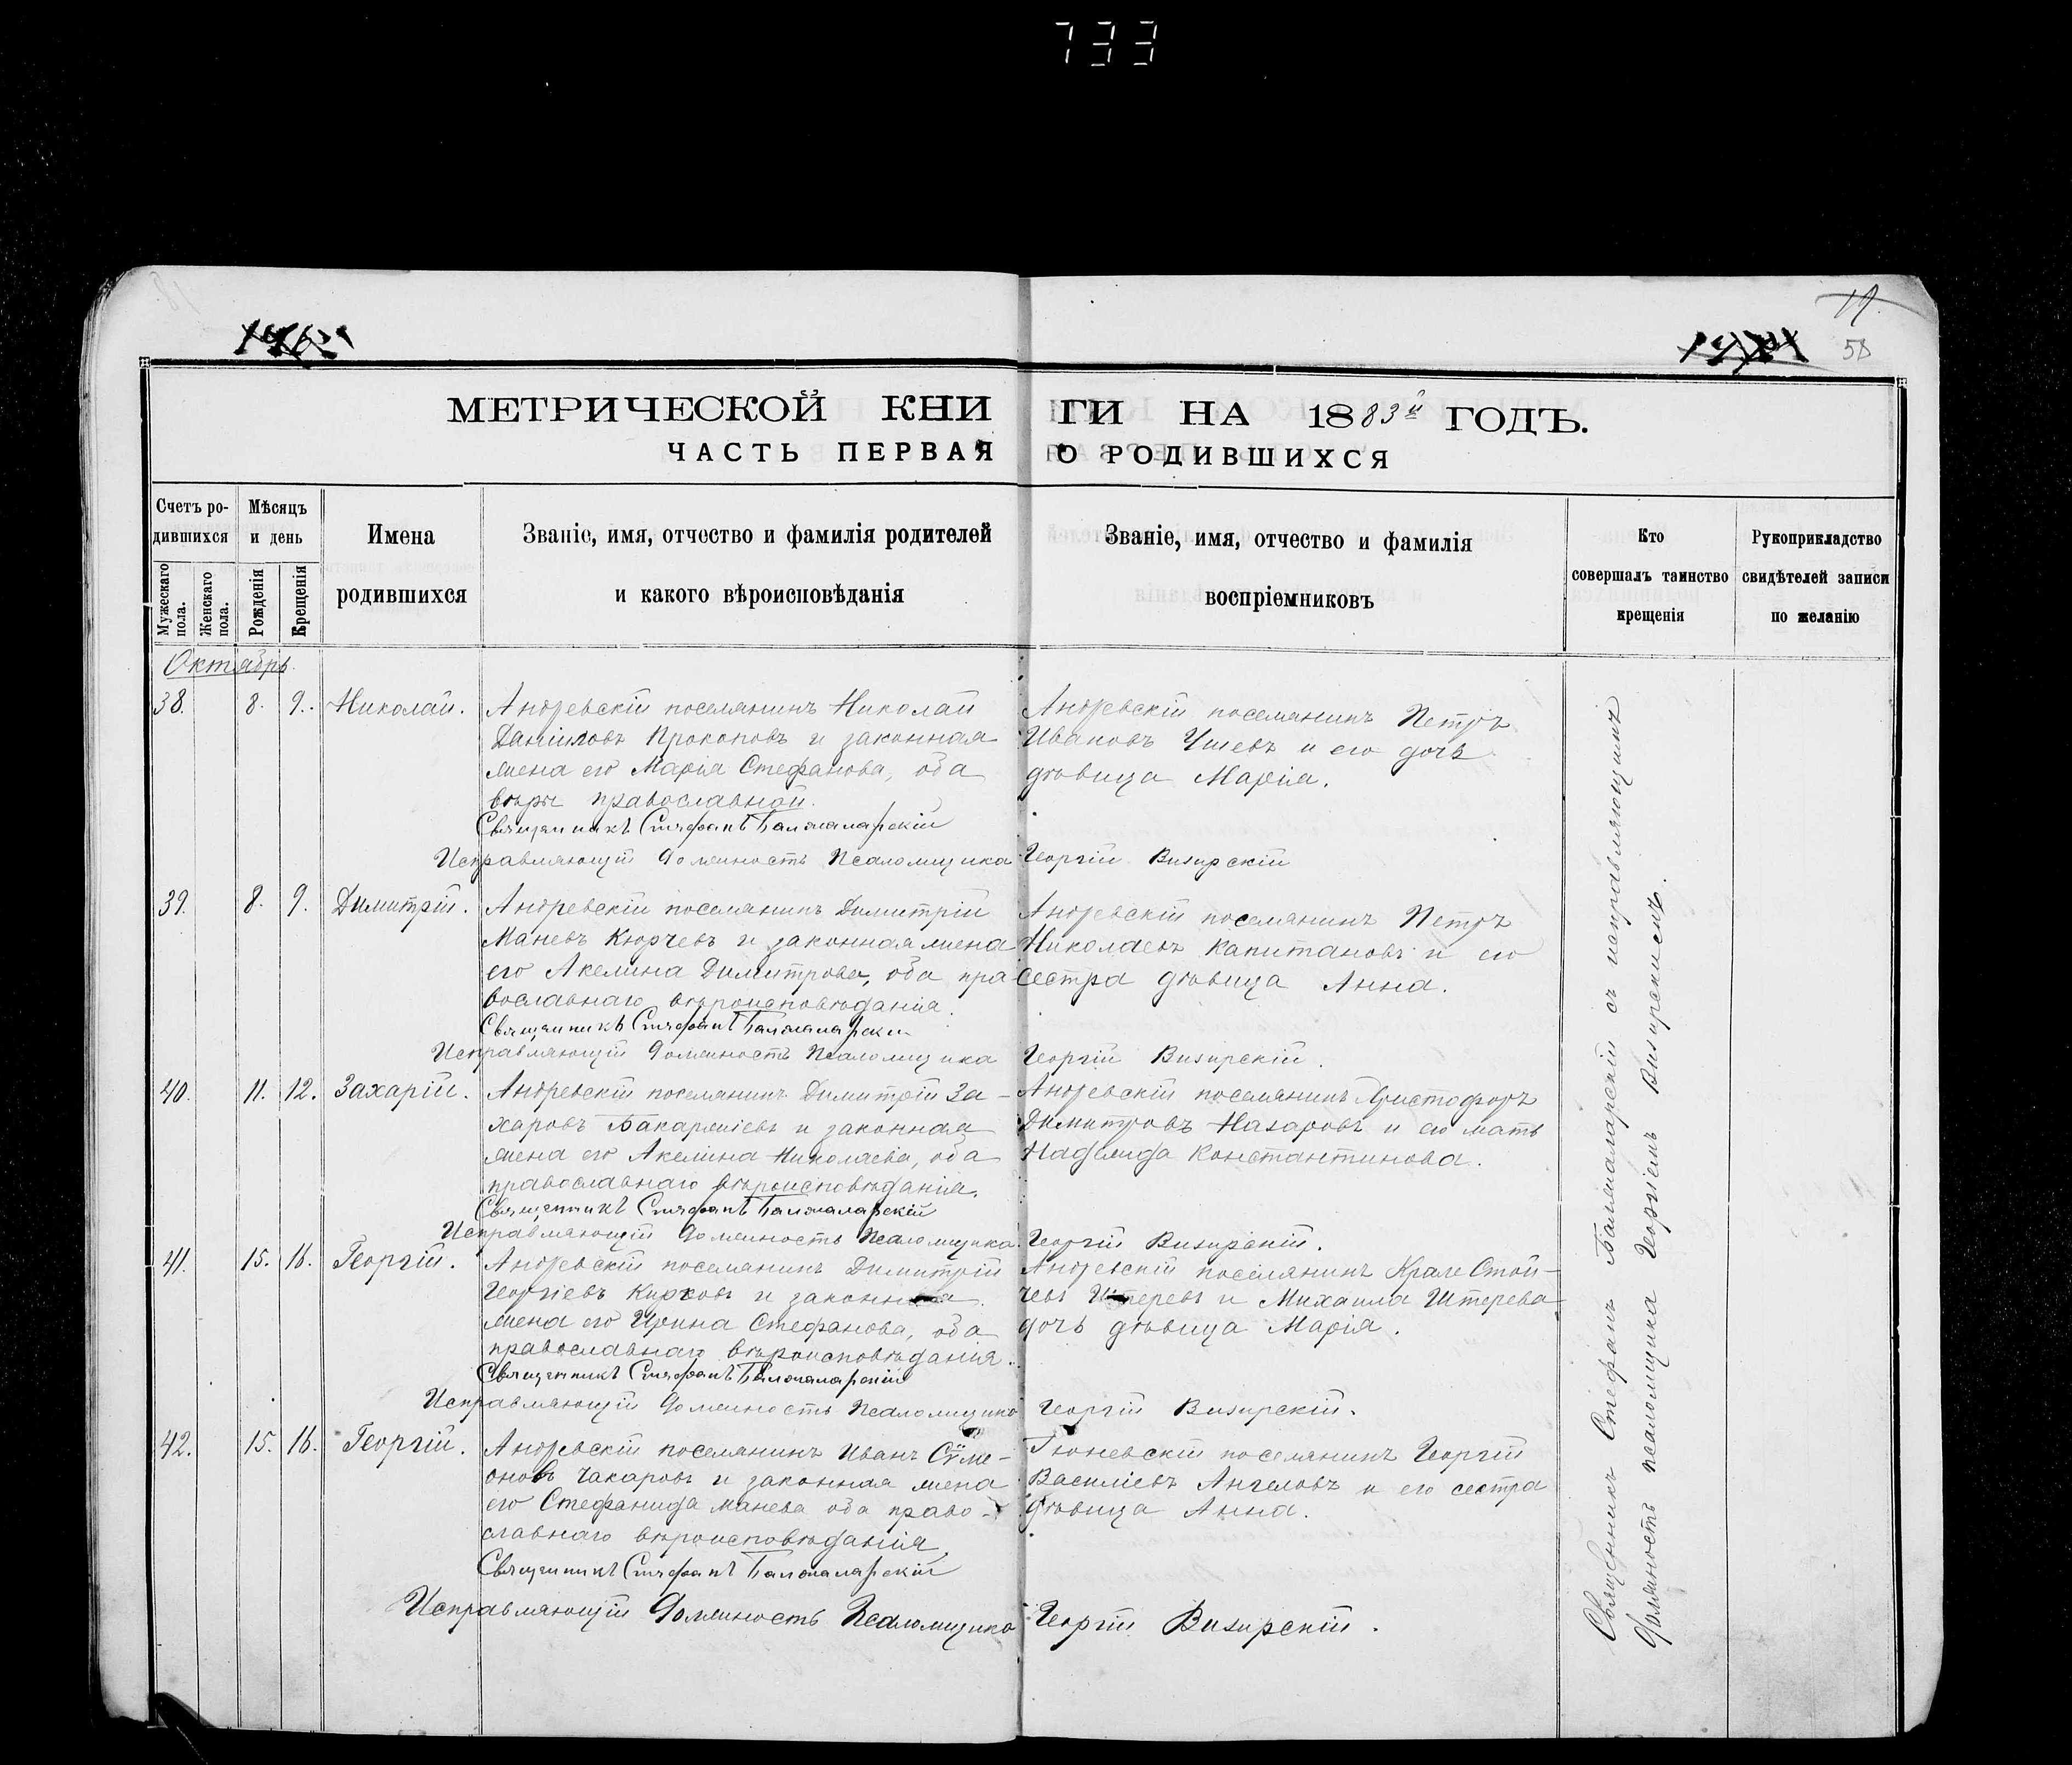 733
58
МЕТРИЧЕСКОЙ КНИГИ НА 1883й ГОДЪ.
ЧАСТЬ ПЕРВАЯ О РОДИВШИХСЯ
Счетъ родившихся
Мѣсяцъ и день
Имена родившихся
Званіе, имя, отчество и фамилія родителей и какого вѣроисповѣданія
Званіе, имя, отчество и фамилія воспріемниковъ
Кто совершалъ таинство крещенія
Рукоприкладство свидѣтелей записи по желанію
Мужескаго пола.
Женскаго пола.
Рожденія
Крещенія
Октябрь.
38. 8. 9. Николай.
Андревскій поселянинъ Николай
Даніиловъ Прокоповъ и законная
жена его Марія Стефанова, оба
вѣры православной.
Андревскій поселянинъ Петръ
Ивановъ и его дочь
дѣвица Марія.
Священникъ Стефанъ Балжаларскій
Исправляющій должность Псаломщика Георгій Визирскій
39. 8. 9. Димитрій.
Андревскій поселянинъ Димитрій
Маневъ Кюрчевъ и законная жена
его Акелина Димитрова, оба пра
вославнаго вѣроисповѣданія.
Андревскій поселянинъ Петръ
Николаевъ Капитановъ и его
сестра дѣвица Анна.
Священникъ Стефанъ Балжаларскій
Исправляющій должность Псаломщика Георгій Визирскій.
40. 11. 12. Захарій.
Андревскій поселянинъ Димитрій За-
харовъ и законная
жена его Акелина Николаева, оба
православнаго вѣроисповѣданія.
Андревскій поселянинъ Христофоръ
Димитровъ Назаровъ и его мать
Надежда Константинова.
Священникъ Стефанъ Балжаларскій
Исправляющій должность Псаломщика Георгій Визирскій.
41. 15. 16. Георгій.
Андревскій поселянинъ Димитрій
Георгіевъ и законная
жена его Ирина Стефанова, оба
православнаго вѣроисповѣданія.
Андревскій поселянинъ Крале Стой-
чевъ Штеревъ и Михаила Штерева
дочь дѣвица Марія.
Священникъ Стефанъ Балжаларскій
Исправляющій должность Псаломщика Георгій Визирскій.
42. 15. 16. Георгій.
Андревскій поселянинъ Иванъ Сѵме-
оновъ Чакаровъ и законная жена
его Стефанида Манева оба право-
славнаго вѣроисповѣданія.
Гюневскій поселянинъ Георгій
Василіевъ Ангеловъ и его сестра
дѣвица Анна.
Священникъ Стефанъ Балжаларскій
Исправляющій должность Псаломщика Георгій Визирскій.
Священникъ Стефанъ Балжаларскій съ исправляющимъ
должность псаломщика Георгіемъ Визирскимъ.